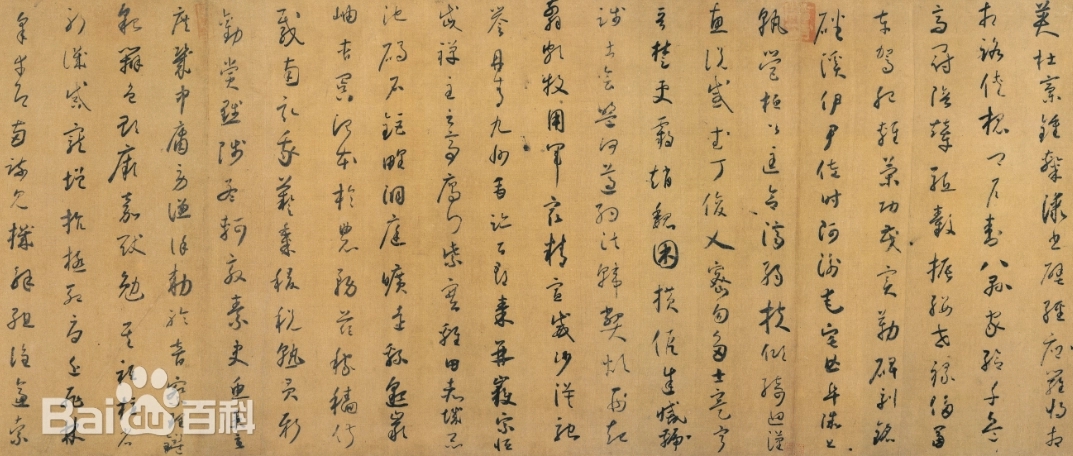 英杜稾鍾隸漆書壁經府羅將相
路俠槐卿户封八縣家給千兵
高冠陪輦驅轂振纓世祿侈富
車駕肥輕策功茂實勒碑刻銘
磻溪伊尹佐時阿衡奄宅曲阜微旦
孰營桓公匡合濟弱扶傾綺迴漢
惠說感武丁俊乂密勿多士寔寧
晉楚更霸趙魏困橫假途滅虢
踐土會盟何遵約法韓弊煩刑起
翦頗牧用軍最精宣威沙漠馳
譽丹青九州禹跡百郡秦并嶽宗恒
岱禪主云亭雁門紫塞雞田赤城昆
池碣石鉅野洞庭曠遠緜邈巖
岫杳冥治本於農務茲稼穡俶
載南畝我藝黍稷稅熟貢新
勸賞黜陟孟軻敦素史魚秉直
庶幾中庸勞謙謹敕聆音察理鑑
貌辨色貽厥嘉猷勉其祗植省
躬譏誡寵增抗極殆辱近恥林
皋幸即兩疏見機解組誰逼索
Baidu百科